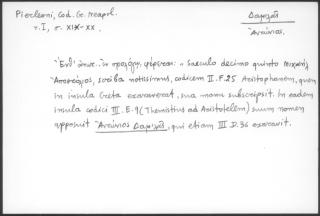 Pierleoni, Cod. Gr. Neapol.
τ. I, σ. XIX-XX.
Δαμιλᾶς
Ἀντώνιος.
"Ἐνθ' ἀνωτ. ἐν προλόγῳ, φέρεται: "Saeculo decimo quinto Μιχαὴλ
Ἀποστόλης, scriba notissimus, codicem II.F.25 Aristophaneum, quem
in insula Creta exaraverat, sua manu subscripsit. In eadem
insula codici III.E.9 (Themistius ad Aristotelem) suum nomen
apposuit Ἀντώνιος Δαμιλᾶς, qui etiam III D.36 exaravit.